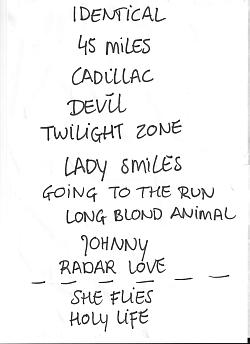 IDENTICAL
45 MILES
CADILLAC
DEVIL
TWILIGHT ZONE
LADY SMILES
GOING TO THE RUN
LONG BLOND ANIMAL
JOHNNY
RADAR LOVE
SHE FLIES
HOLY LIFE